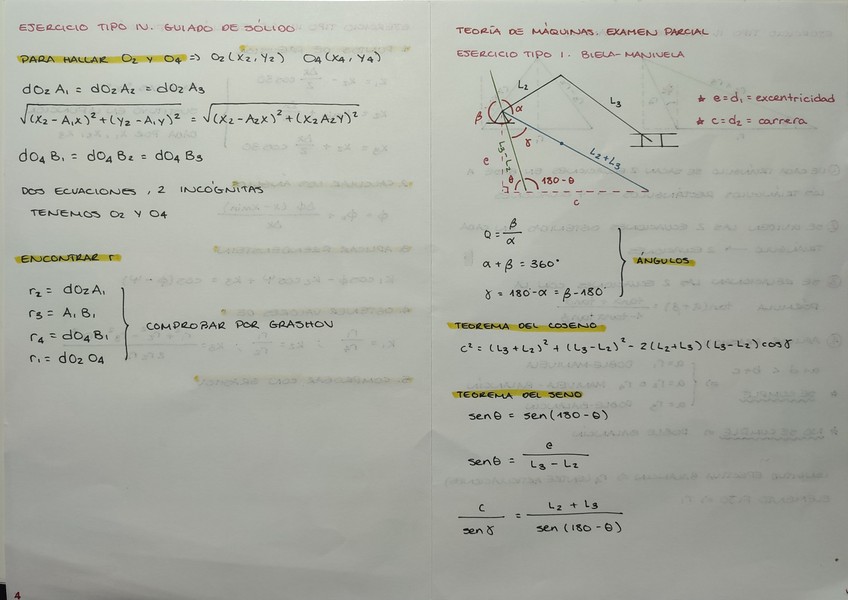 EJERCICIO TIPO IV. GUIADO DE SÓLIDO
PARA HALLAR O2 Y O4 => O2(X2, Y2) O4(X4, Y4)
dO2 A1 = dO2 A2 = dO2 A3
√(X2-A1X)²+(Y2-A1Y)² = √(X2-A2X)²+(X2A2Y)²
dO4 B1 = dO4 B2 = dO4 B3
DOS ECUACIONES, 2 INCÓGNITAS
TENEMOS O2 Y O4
ENCONTRAR r
r2 = dO2A1
r3 = A1B1
r4 = dO4B1
r1 = dO2O4
COMPROBAR POR GRASHOV
4
TEORÍA DE MÁQUINAS. EXAMEN PARCIAL
EJERCICIO TIPO I. BIELA-MANIVELA
L2
L3
β
α
γ
L3-L2
L2+L3
e
θ
180-θ
c
* e=d1 = excentricidad
* c=d2 = carrera
Q = β/α
α+β = 360°
γ = 180°-α = β-180°
ÁNGULOS
TEOREMA DEL COSENO
c² = (L3+L2)² + (L3-L2)² - 2(L2+L3)(L3-L2)cosγ
TEOREMA DEL SENO
senθ = sen(180-θ)
senθ = e / L3-L2
c / senγ = L2+L3 / sen(180-θ)